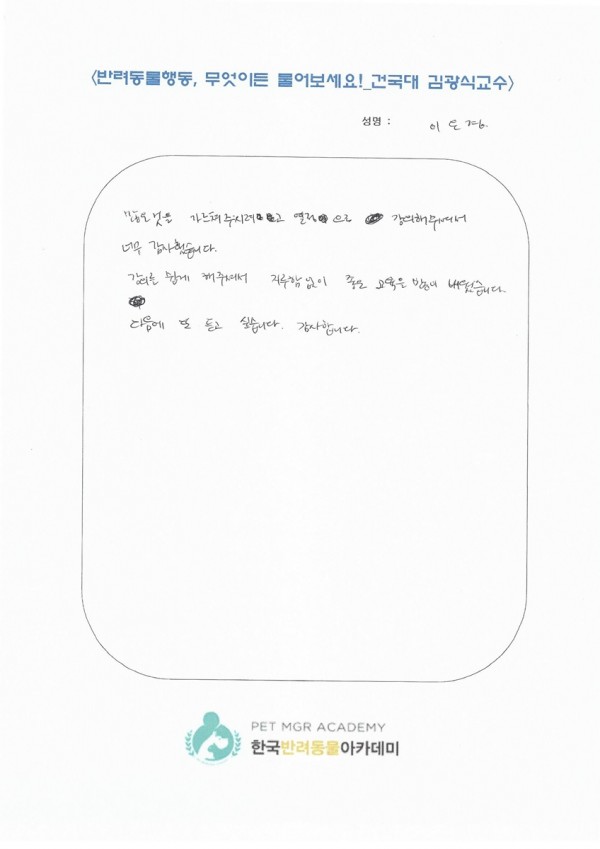 <반려동물행동, 무엇이든 물어보세요!_건국대 김광식교수>
성명 : 이도경.
많은것을 가르쳐주시려고 열정으로 강의해주셔서
너무 감사했습니다.
강의를 쉽게 해주셔서 지루함없이 좋은 교육을 받아 배웠습니다.
다음에 또 듣고 싶습니다. 감사합니다.
PET MGR ACADEMY
한국반려동물아카데미